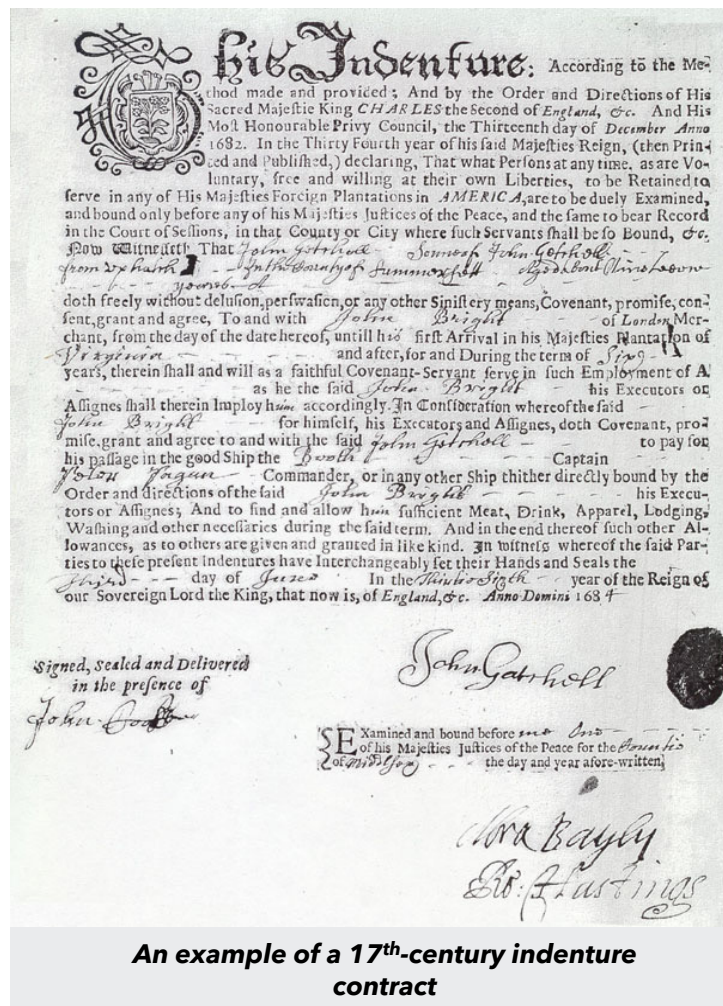 This Indenture: According to the Me-
thod made and provided; And by the Order and Directions of His
Sacred Majestie King CHARLES the Second of England, &c. And His
Most Honourable Privy Council, the Thirteenth day of December Anno
1682. In the Thirty Fourth year of his said Majesties Reign, (then Prin-
ted and Published,) declaring, That what Persons at any time, as are Vo-
luntary, free and willing at their own Liberties, to be Retained to
serve in any of His Majesties Foreign Plantations in AMERICA, are to be duely Examined,
and bound only before any of his Majesties Justices of the Peace, and the same to bear Record
in the Court of Sessions, in that County or City where such Servants shall be so Bound, &c.
Now Witnesseth That John Getchell Sonne of John Getchell
from In the County of Summersett Aged about Nineteene
yeares
doth freely without delusion, perswasion, or any other Sinistery means, Covenant, promise, con-
sent, grant and agree, To and with John Bright of London Mer-
chant, from the day of the date hereof, untill his first Arrival in his Majesties Plantation of
Virginia and after, for and During the term of
years, therein shall and will as a faithful Covenant-Servant serve in such Employment of A
as he the said John Bright his Executors or
Assignes shall therein Imploy him accordingly. In Consideration whereof the said
John Bright for himself, his Executors and Assignes, doth Covenant, pro-
mise, grant and agree to and with the said John Getchell to pay for
his passage in the good Ship the Booth Captain
Peter Pagan Commander, or in any other Ship thither directly bound by the
Order and directions of the said John Bright his Execu-
tors or Assignes; And to find and allow him sufficient Meat, Drink, Apparel, Lodging,
Washing and other necessaries during the said term. And in the end thereof such other Al-
lowances, as to others are given and granted in like kind. In witness whereof the said Par-
ties to these present Indentures have Interchangeably set their Hands and Seals the
third day of June In the Thirtie Sixth year of the Reign of
our Sovereign Lord the King, that now is, of England, &c. Anno Domini 1684
Signed, Sealed and Delivered
in the presence of
John
John Gatchell
Examined and bound before me One
of his Majesties Justices of the Peace for the Countie
of Middlesex the day and year afore-written.
Bayly
Ro: Hastings
An example of a 17th-century indenture
contract